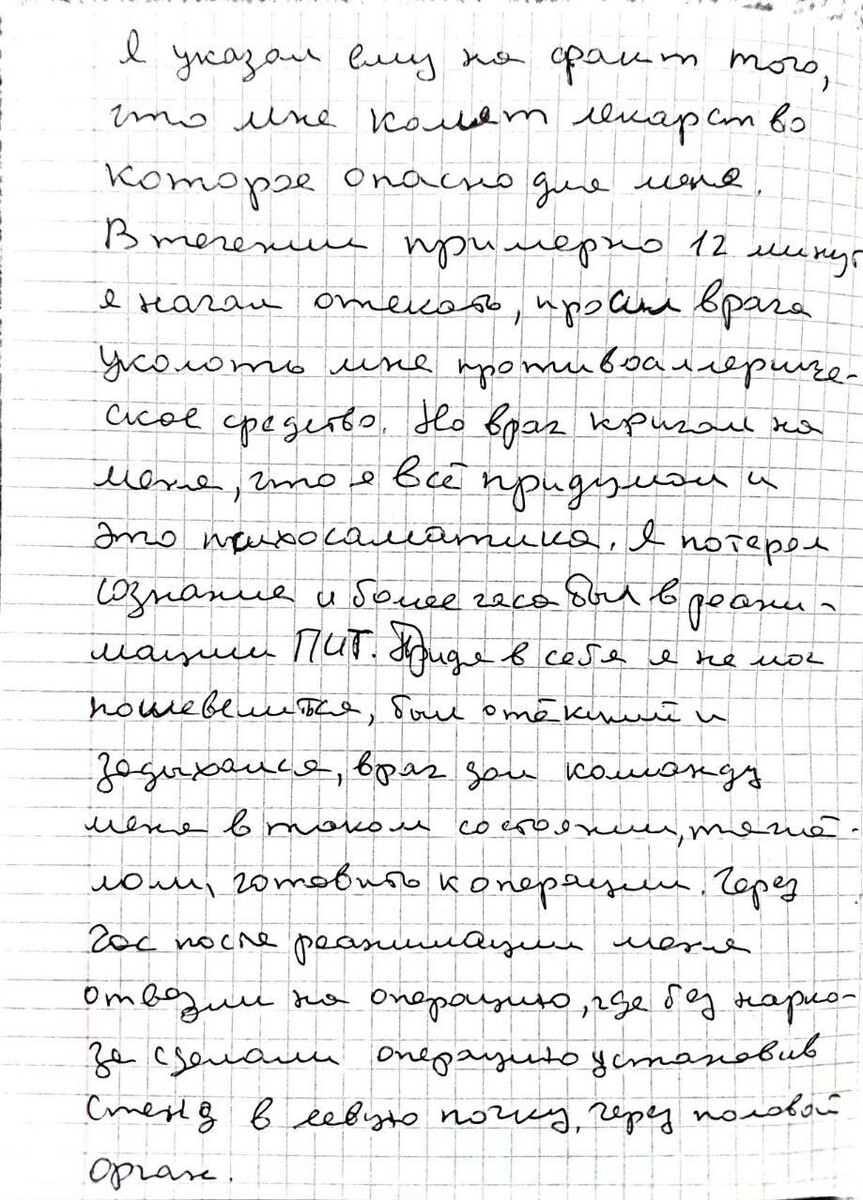 Я указал ему на факт того,
что мне колят лекарство
которое опасно для меня.
В течении примерно 12 минут
я начал отекать, просил врача
уколоть мне противоаллергиче-
ское средство. Но врач кричал на
меня, что я всё придумал и
это психосаматика. Я потерял
сознание и более часа был в реани-
мации ПИТ. Придя в себя я не мог
пошевелиться, был отёкший и
задыхался, врач дал команду
меня в таком состоянии, тяжё-
лом, готовить к операции. Через
час после реанимации меня
отвезли на операцию, где без нарко-
за сделали операцию установив
стенд в левую почку, через половой
орган.